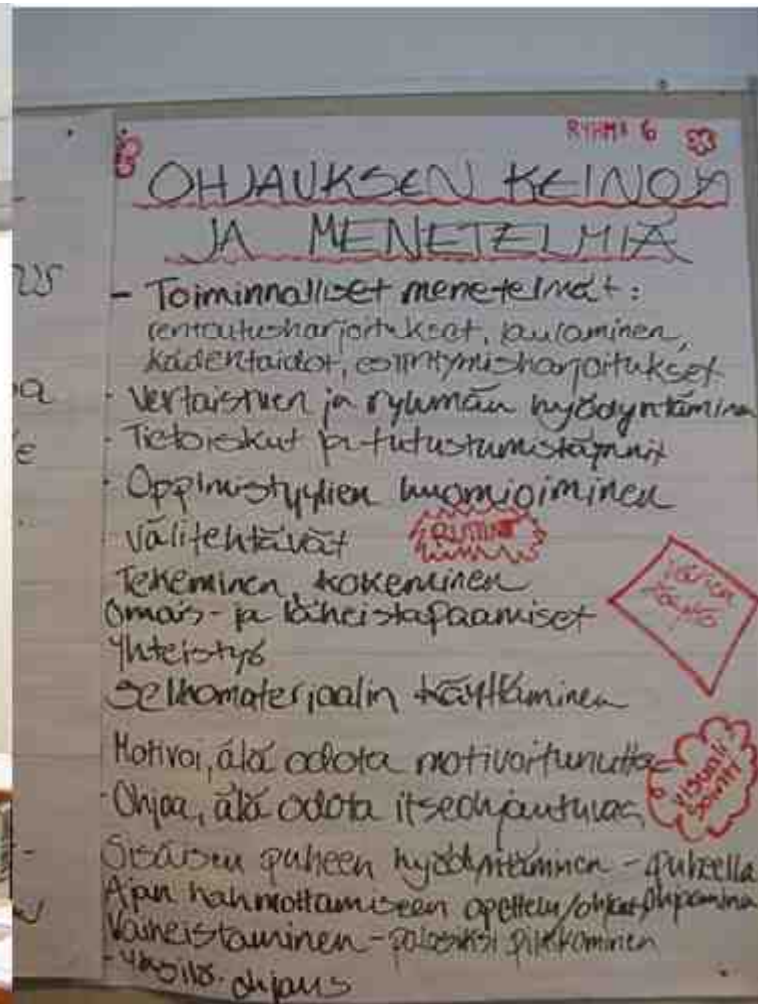 RYHMÄ 6
OHJAUKSEN KEINOJA
JA MENETELMIÄ
- Toiminnalliset menetelmät:
rentoutusharjoitukset, laulaminen,
kädentaidot, esiintymisharjoitukset
- Vertaistuen ja ryhmän hyödyntäminen
- Tietoiskut ja tutustumiskäynnit
- Oppimistyylien huomioiminen
Välitehtävät
RUTIINIT
Tekeminen, kokeminen
Värien
käyttö
Omais- ja läheistapaamiset
Yhteistyö
Selkomateriaalin käyttäminen
Motivoi, älä odota motivoitunutta
visuali
sointi
- Ohjaa, älä odota itseohjautuvaa
Sisäisen puheen hyödyntäminen - puheella
ohjaaminen
Ajan hahmottamiseen opettelu/ohjaus
Vaiheistaminen - palasiksi pilkkominen
- Yksilö-ohjaus